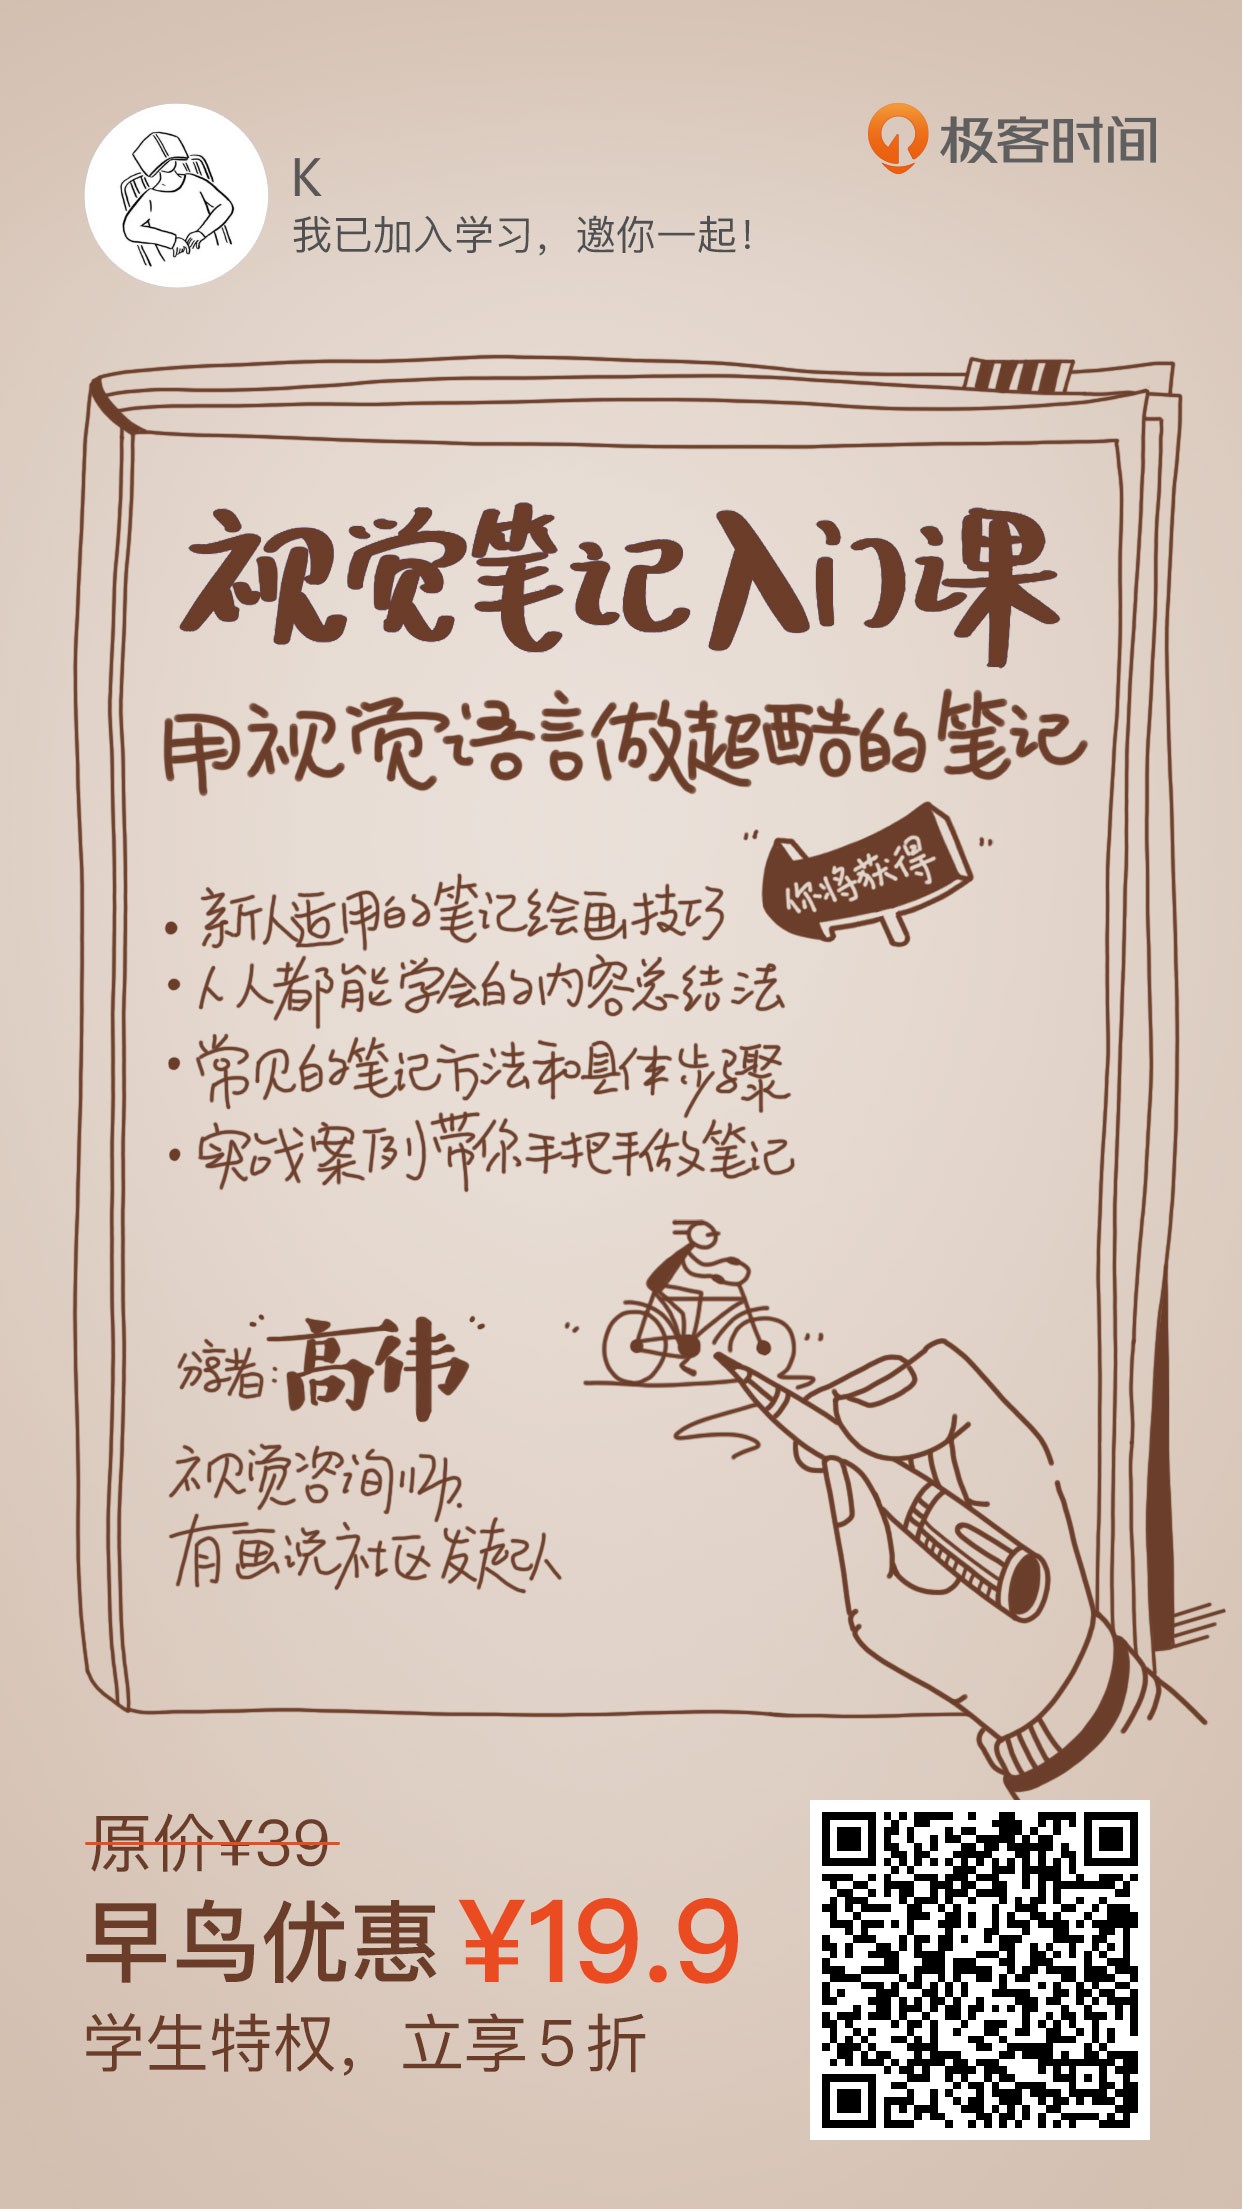 K
我已加入学习，邀你一起！
极客时间
视觉笔记入门课
用视觉语言做超酷的笔记
你将获得
新人适用的笔记绘画技巧
人人都能学会的内容总结法
常见的笔记方法和具体步骤
实战案例带你手把手做笔记
分享者：高伟
视觉咨询师，
有画说社区发起人
原价¥39
早鸟优惠 ¥19.9
学生特权，立享5折